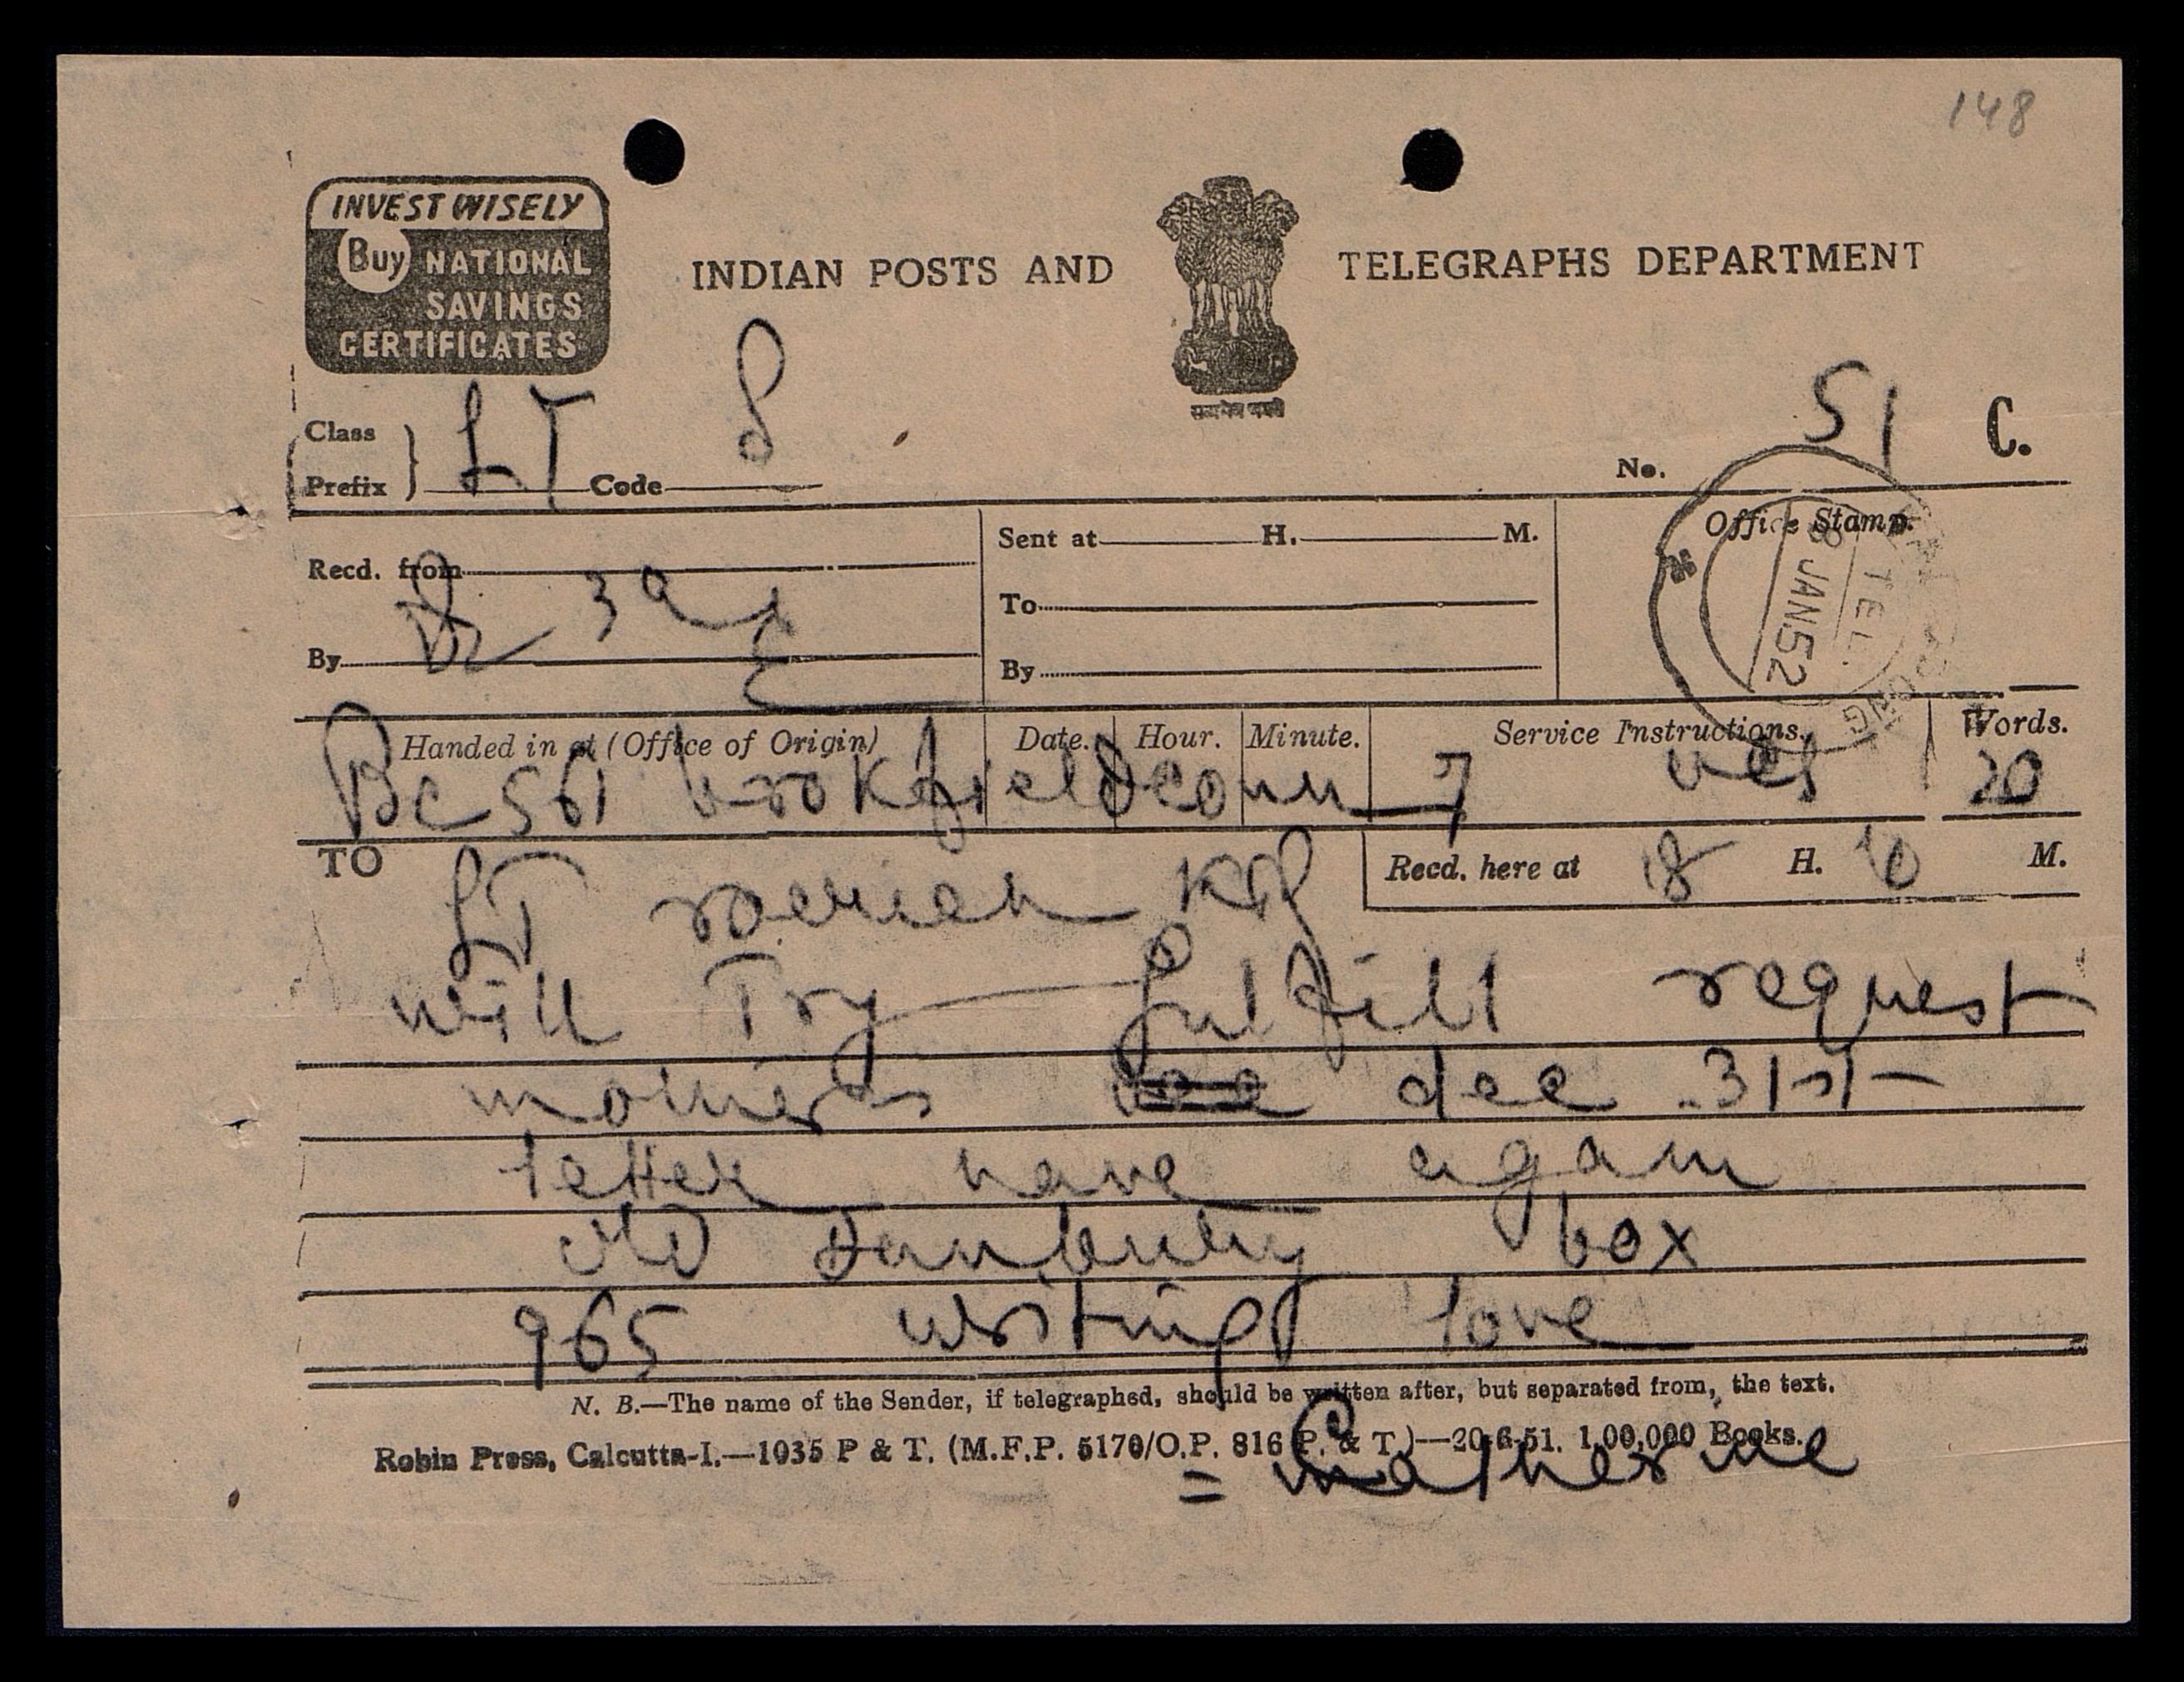 148
INVEST WISELY
Buy NATIONAL
SAVINGS
CERTIFICATES
INDIAN POSTS AND TELEGRAPHS DEPARTMENT
सत्यमेव जयते
Class
Prefix } LT Code
No. 51 C.
Recd. from
By
Sent at H. M.
To
By
Office Stamp.
TEL.
8 JAN 52
Handed in at (Office of Origin) Date. Hour. Minute. Service Instructions. Words.
Bc 561 brokfieldconn 7 20
TO
Recd. here at 18 H. 10 M.
LT roerich KPG
will Try fulfill request
mothers dec 31st
letter have again
old Danbury box
965 writing love
N. B.—The name of the Sender, if telegraphed, should be written after, but separated from, the text.
Robin Press, Calcutta-I.—1035 P & T. (M.F.P. 5170/O.P. 816 P. & T.)—20-6-51. 1,00,000 Books.
= Catherine